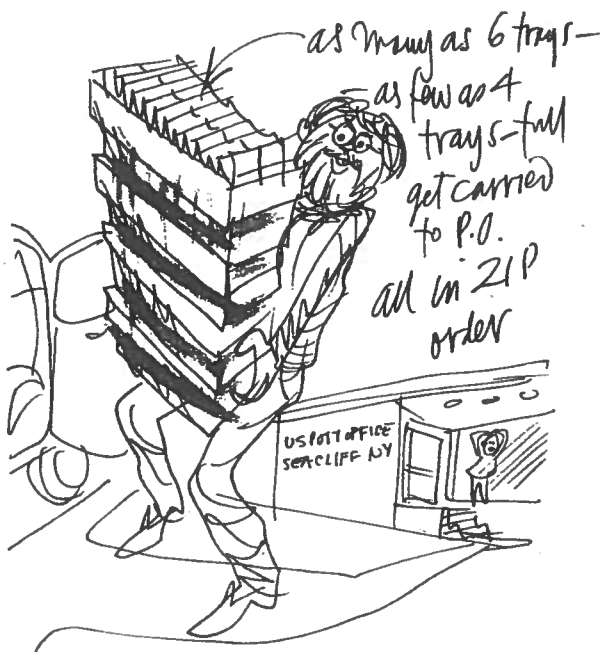 as many as 6 trays—
as few as 4
trays—full
get carried
to P.O.
all in ZIP
order
US POST OFFICE
SEACLIFF NY